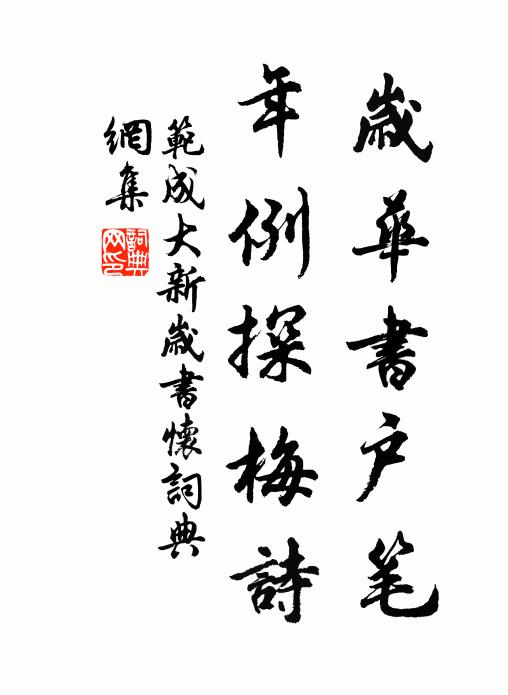 歲華書户笔
年例探梅詩
範成大新歲書懷詞典
網集
詞典網印